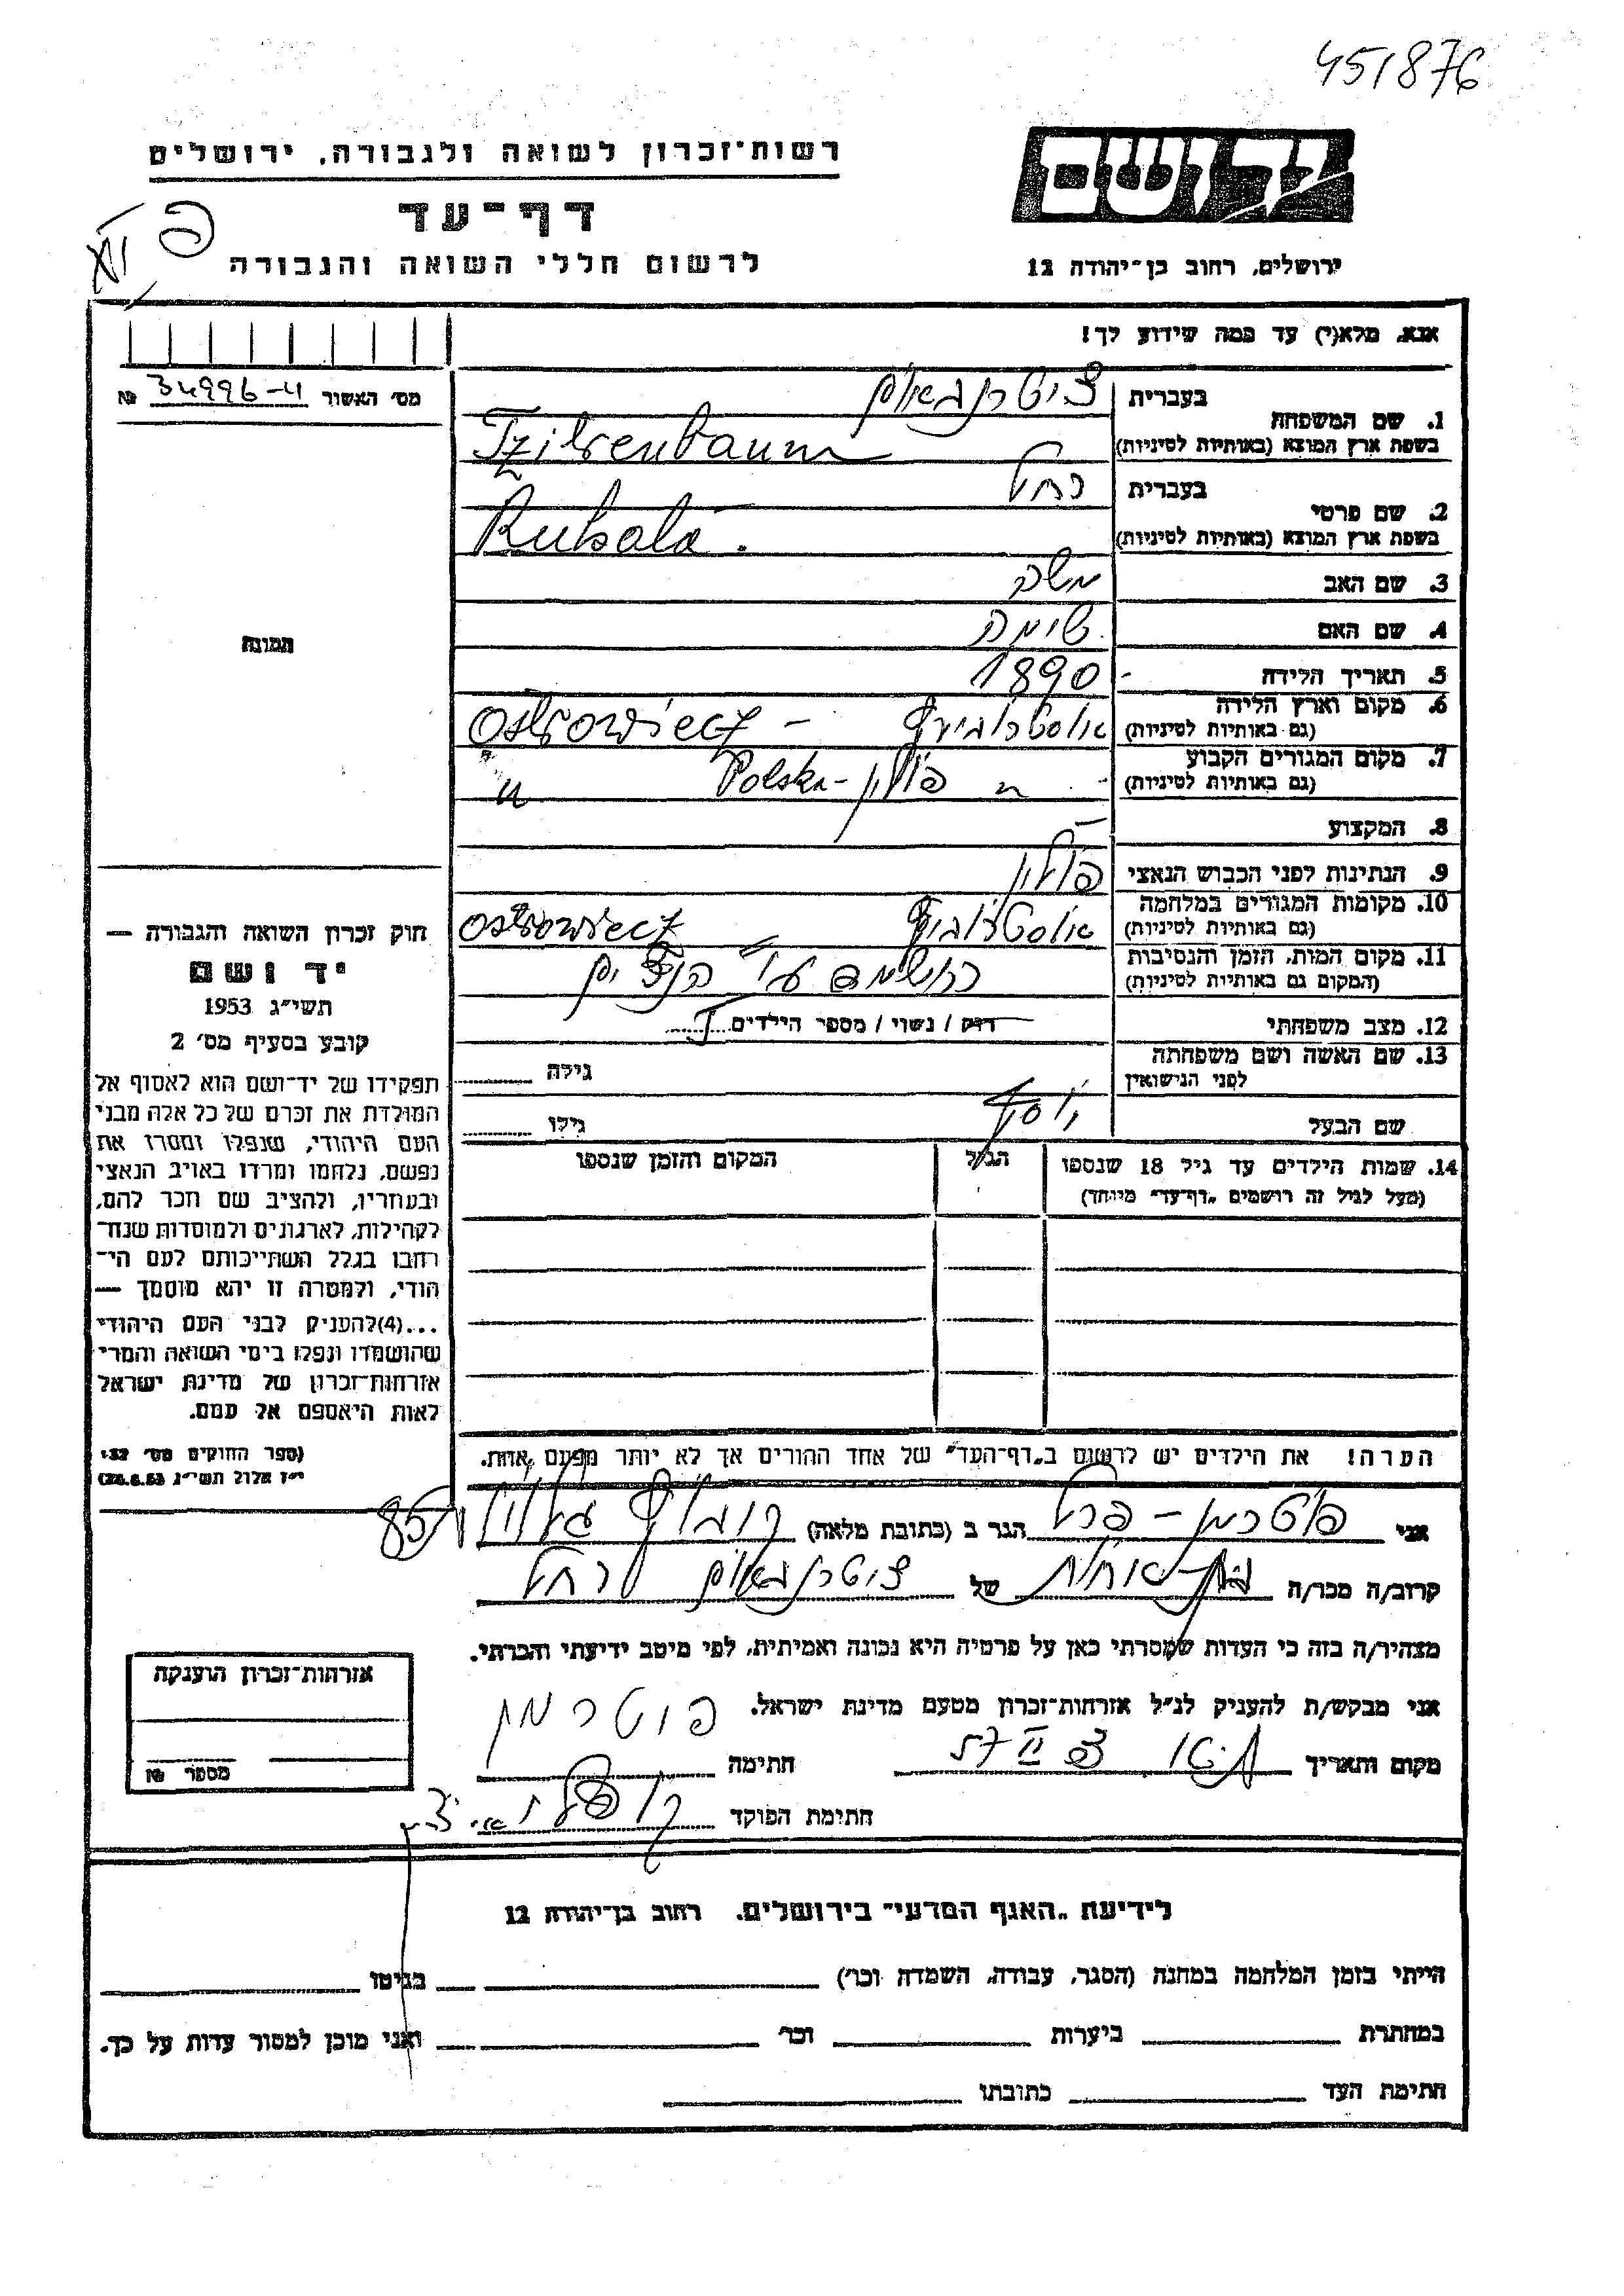 451876
יד ושם
ירושלים, רחוב בן־יהודה 12
רשות־זכרון לשואה ולגבורה, ירושלים
דף־עד
לרשום חללי השואה והגבורה
אנא, מלא(י) עד כמה שידוע לך!
מס׳ האשור 34996-4 №
1. שם המשפחה
בעברית ציטרנבאום
בשפת ארץ המוצא (באותיות לטיניות) Tzitrenbaum
2. שם פרטי
בעברית רחל
בשפת ארץ המוצא (באותיות לטיניות)
3. שם האב משה
4. שם האם שימה
5. תאריך הלידה 1890
6. מקום וארץ הלידה
(גם באותיות לטיניות) אוסטרוביץ - Ostrowiecz
7. מקום המגורים הקבוע
(גם באותיות לטיניות) " פולין - Polska "
8. המקצוע –
9. הנתינות לפני הכבוש הנאצי פולין
10. מקומות המגורים במלחמה
(גם באותיות לטיניות) אוסטרוביץ ostrowiecz
11. מקום המות, הזמן והנסיבות
(המקום גם באותיות לטיניות) ע״י הנצים
12. מצב משפחתי רוק / נשוי / מספר הילדים
13. שם האשה ושם משפחתה
לפני הנישואין גילה
שם הבעל יוסף גילו
14. שמות הילדים עד גיל 18 שנספו הגיל המקום והזמן שנספו
(מעל לגיל זה רושמים „דף־עד״ מיוחד)
הערה! את הילדים יש לרשום ב„דף־העד״ של אחד ההורים אך לא יותר מפעם אחת.
תמונה
חוק זכרון השואה והגבורה —
יד ושם
תשי״ג 1953
קובע בסעיף מס׳ 2
תפקידו של יד־ושם הוא לאסוף אל
המולדת את זכרם של כל אלה מבני
העם היהודי, שנפלו ומסרו את
נפשם, נלחמו ומרדו באויב הנאצי
ובעוזריו, ולהציב שם וזכר להם,
לקהילות, לארגונים ולמוסדות שנח־
רבו בגלל השתייכותם לעם הי־
הודי, ולמטרה זו יהא מוסמך —
...(4)להעניק לבני העם היהודי
שהושמדו ונפלו בימי השואה והמרי
אזרחות־זכרון של מדינת ישראל
לאות היאספם אל עמם.
(ספר החוקים מס׳ 132
י״ז אלול תשי״ג (28.8.53
אני פוטרמן - פרל הגר ב (כתובת מלאה)
קרוב/ה מכר/ה בת-אחות של ציטרנבאום רחל
מצהיר/ה בזה כי העדות שמסרתי כאן על פרטיה היא נכונה ואמיתית, לפי מיטב ידיעתי והכרתי.
אני מבקש/ת להעניק לנ״ל אזרחות־זכרון מטעם מדינת ישראל.
מקום ותאריך חתימה פוטרמן
חתימת הפוקד
אזרחות־זכרון הוענקה
מספר №
לידיעת „האגף המדעי״ בירושלים, רחוב בן־יהודה 12
הייתי בזמן המלחמה במחנה (הסגר, עבודה, השמדה וכו׳) בגיטו
במחתרת ביערות וכו׳ ואני מוכן למסור עדות על כך.
חתימת העד כתובתו